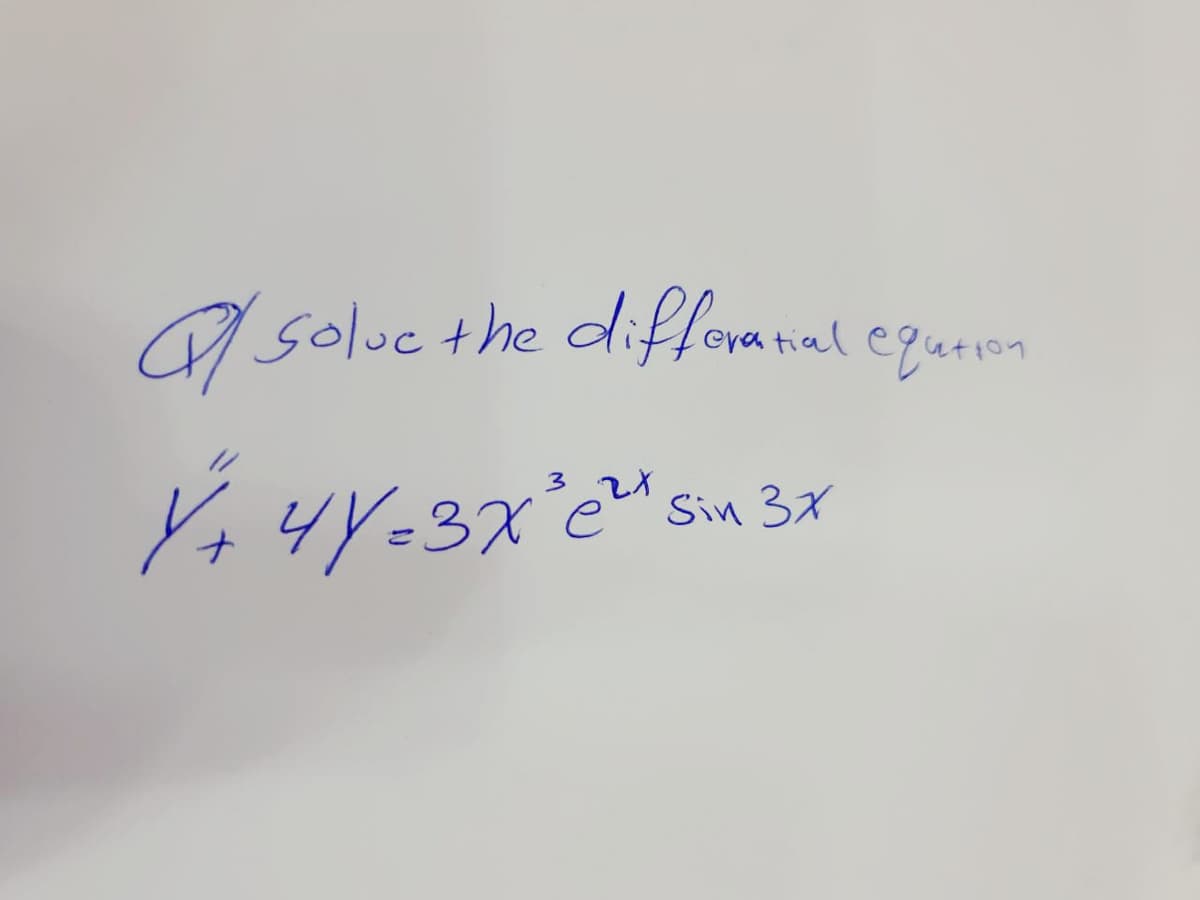 Q/ solve the differatial eqution
y'' + 4y = 3x³e²ˣ sin 3x